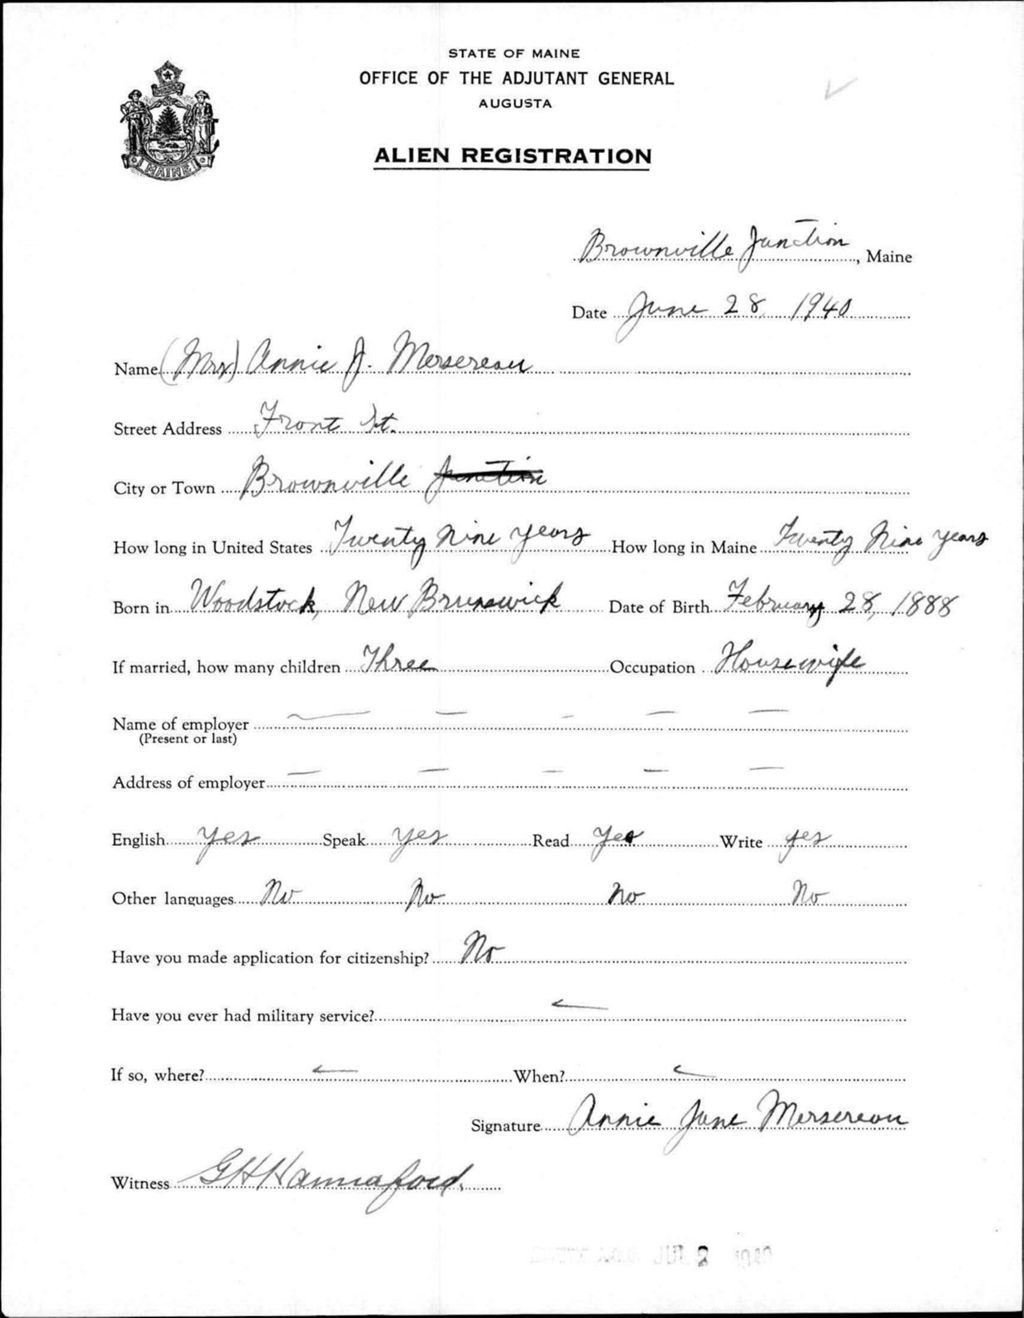 STATE OF MAINE
OFFICE OF THE ADJUTANT GENERAL
AUGUSTA
ALIEN REGISTRATION
MAINE
Brownville Junction, Maine
Date June 28, 1940
Name (Mrs) Annie J. Mersereau
Street Address Front St.
City or Town Brownville Junction
How long in United States Twenty Nine years How long in Maine Twenty Nine years
Born in Woodstock, New Brunswick Date of Birth February 28, 1888
If married, how many children Three Occupation Housewife
Name of employer — — — — —
(Present or last)
Address of employer — — — — —
English yes Speak yes Read yes Write yes
Other languages No No no No
Have you made application for citizenship? No
Have you ever had military service? —
If so, where? — When? —
Signature Annie Jane Mersereau
Witness G H Hannaford.
JUL 2 1940